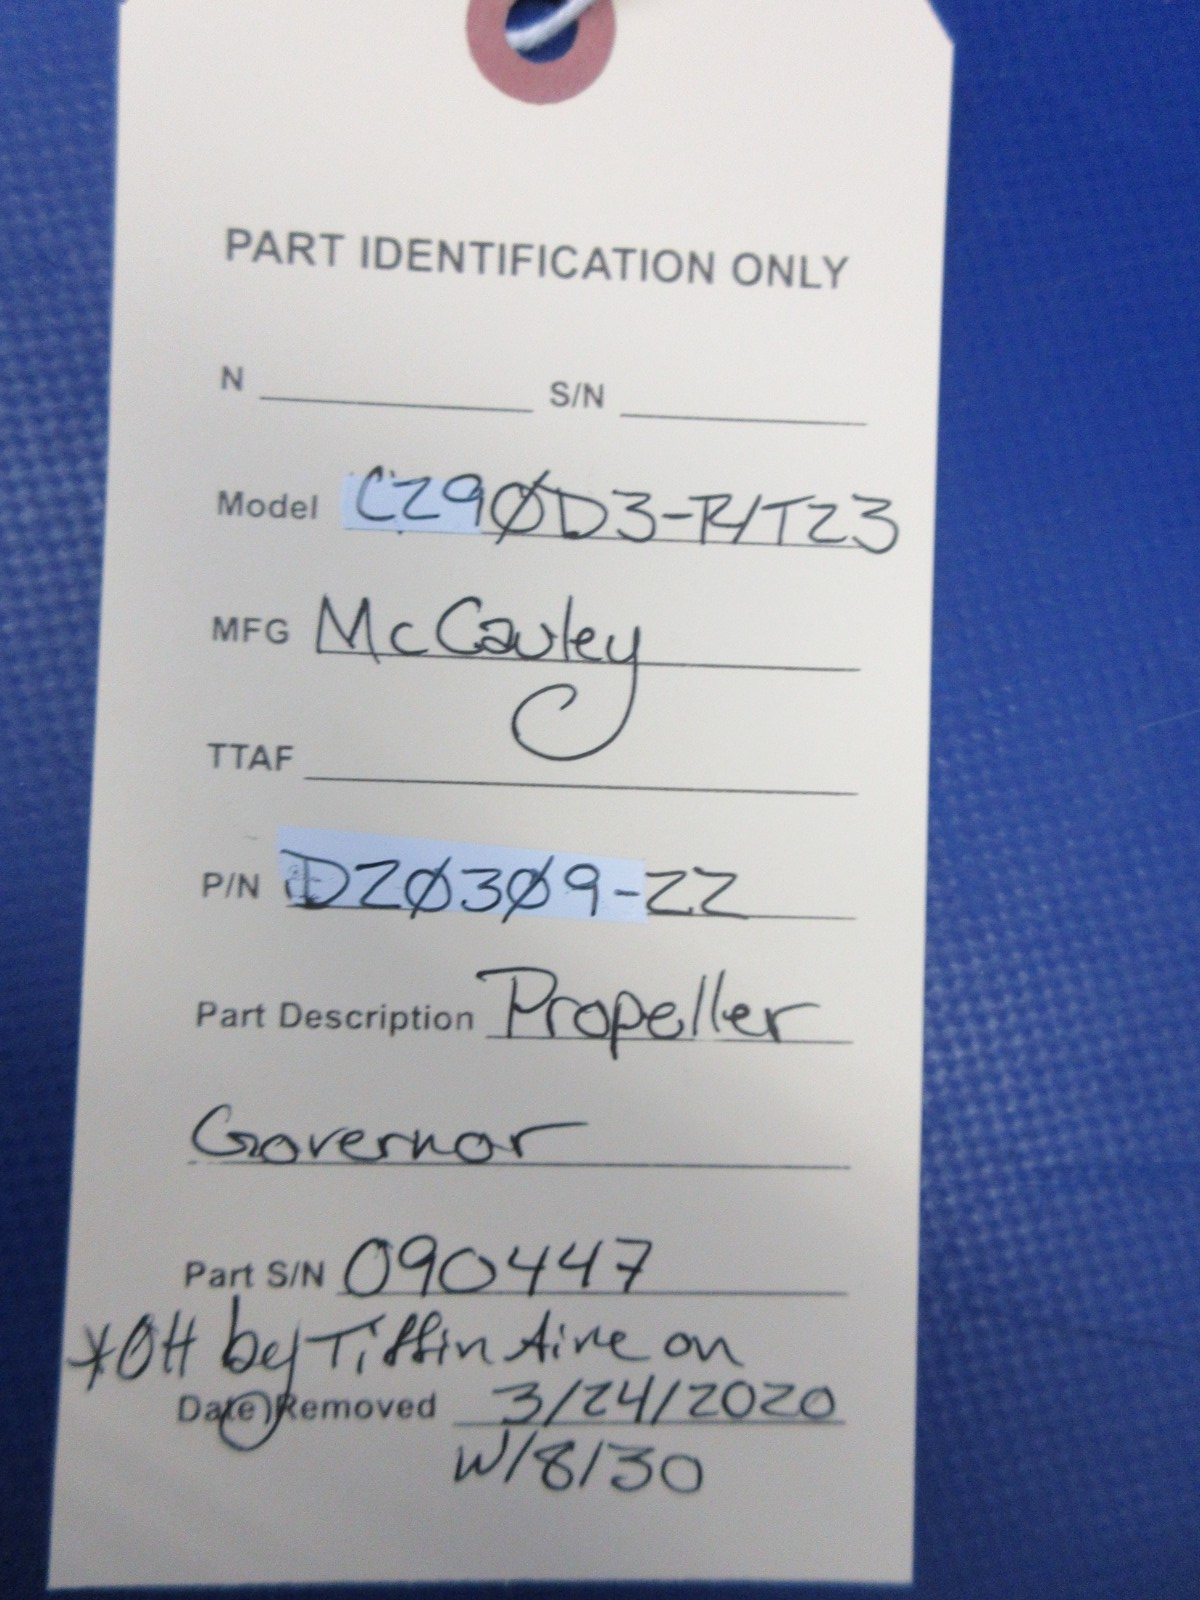 PART IDENTIFICATION ONLY
N S/N
Model C290D3-R/T23
MFG McCauley
TTAF
P/N D20309-22
Part Description Propeller
Governor
Part S/N 090447
*OH by Tiffin Aire on
Date Removed 3/24/2020
W/8130